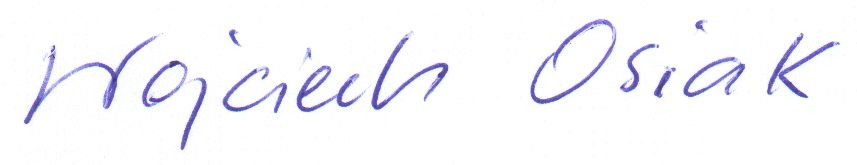 Wojciech Osiak